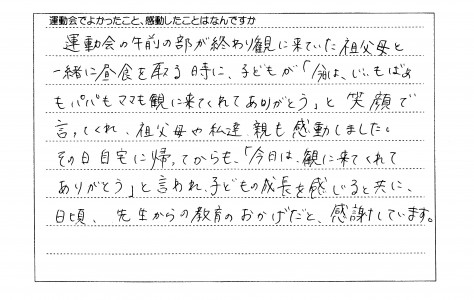 運動会でよかったこと、感動したことはなんですか
運動会の午前の部が終わり観に来ていた祖父母と
一緒に昼食を取る時に、子どもが「今日は、じいもばあ
もパパもママも観に来てくれてありがとう」と笑顔で
言ってくれ、祖父母や私達親も感動しました。
その日自宅に帰ってからも、「今日は、観に来てくれて
ありがとう」と言われ、子どもの成長を感じると共に、
日頃、先生からの教育のおかげだと、感謝しています。